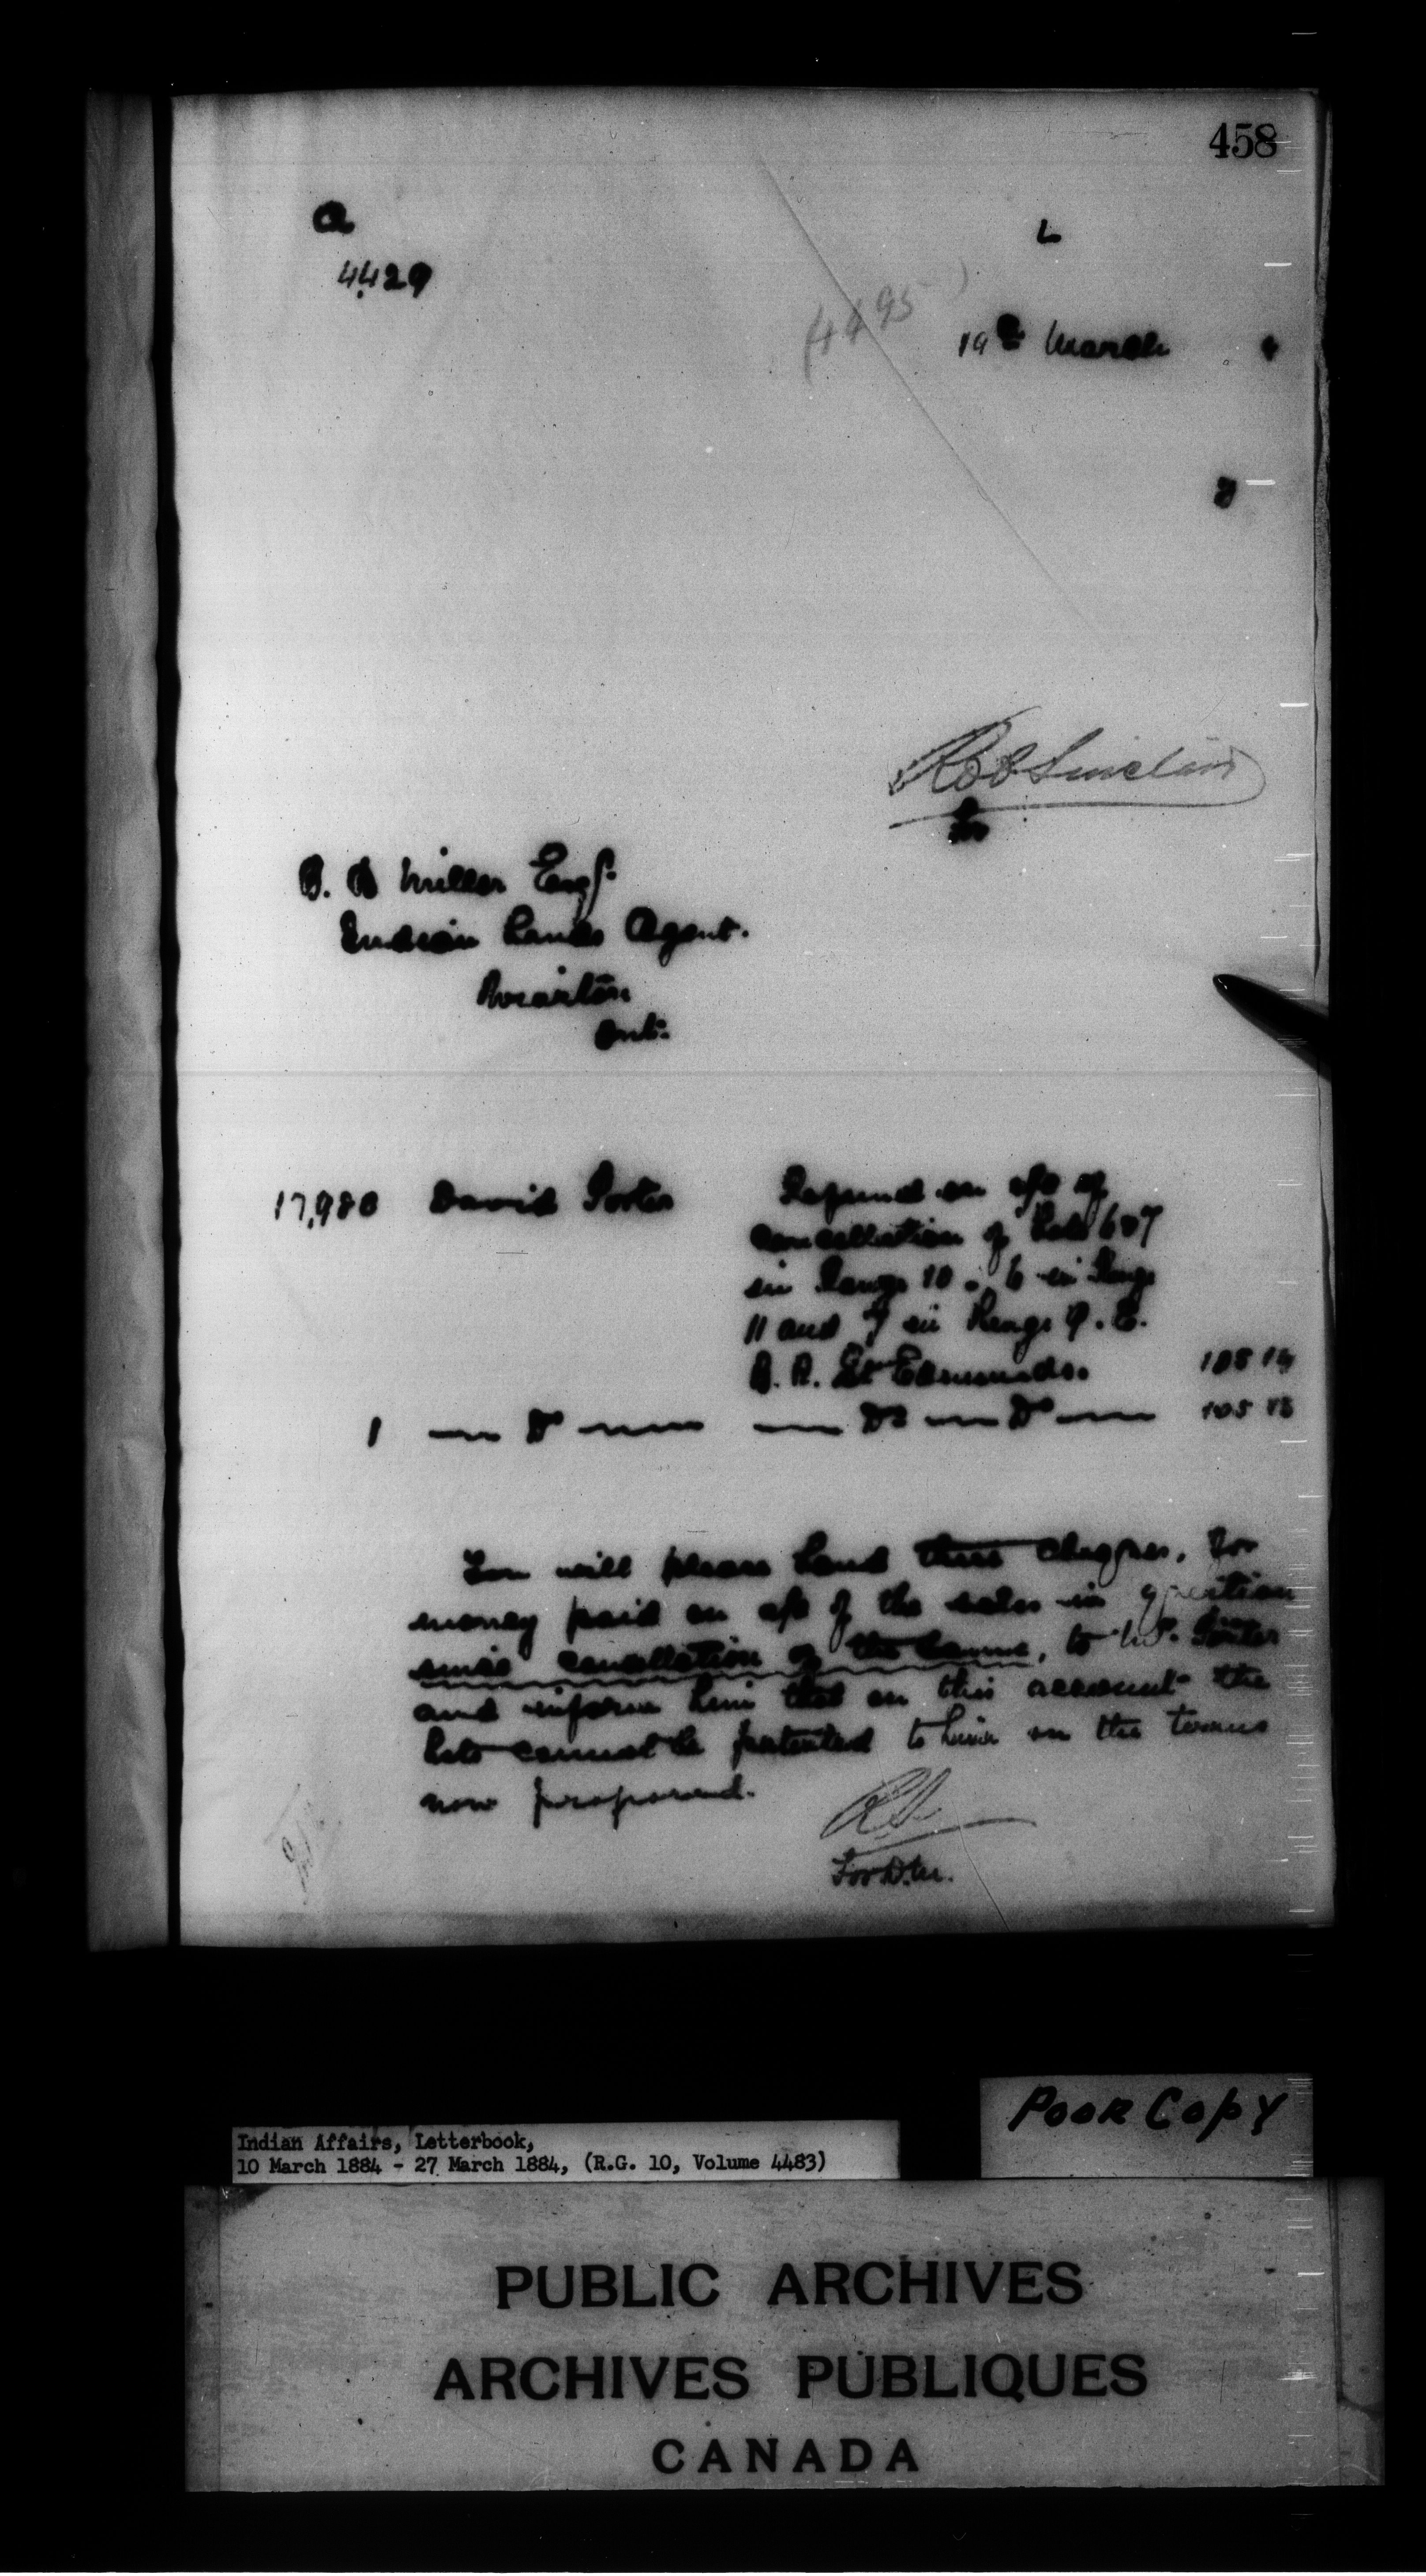 458
a
4429
L
(4495)
19th March 4
2
Rob Sinclair
for
B. B Miller Esq.
Indian Lands Agent.
Wiarton
Ont.
17,980 David Porter Refund on a/c of
cancellation of Lots 6 & 7
in Range 10. 6 in Range
11 and 7 in Range 9. E.
B. R. St Edmunds. 105 14
1 — Do — — Do — Do — 105 13
You will please hand these cheques, for
money paid on a/c of the sales in question
since cancellation of the same, to Mr. Porter
and inform him that on this account the
lots cannot be patented to him on the terms
now proposed.
RS
For D.M.
Poor Copy
Indian Affairs, Letterbook,
10 March 1884 - 27 March 1884, (R.G. 10, Volume 4483)
PUBLIC ARCHIVES
ARCHIVES PUBLIQUES
CANADA